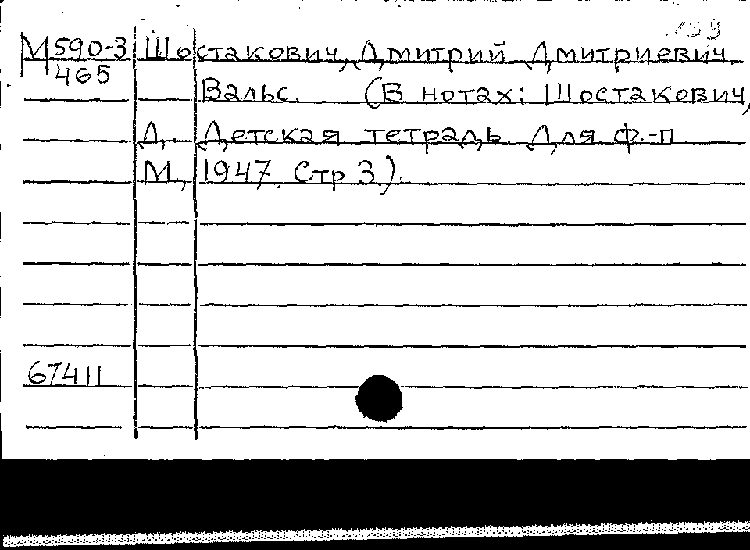 М590-3 Шостакович, Дмитрий Дмитриевич.
465
Вальс. (В нотах: Шостакович,
Д. Детская тетрадь для ф.-п
М., 1947. Стр 3).
67411